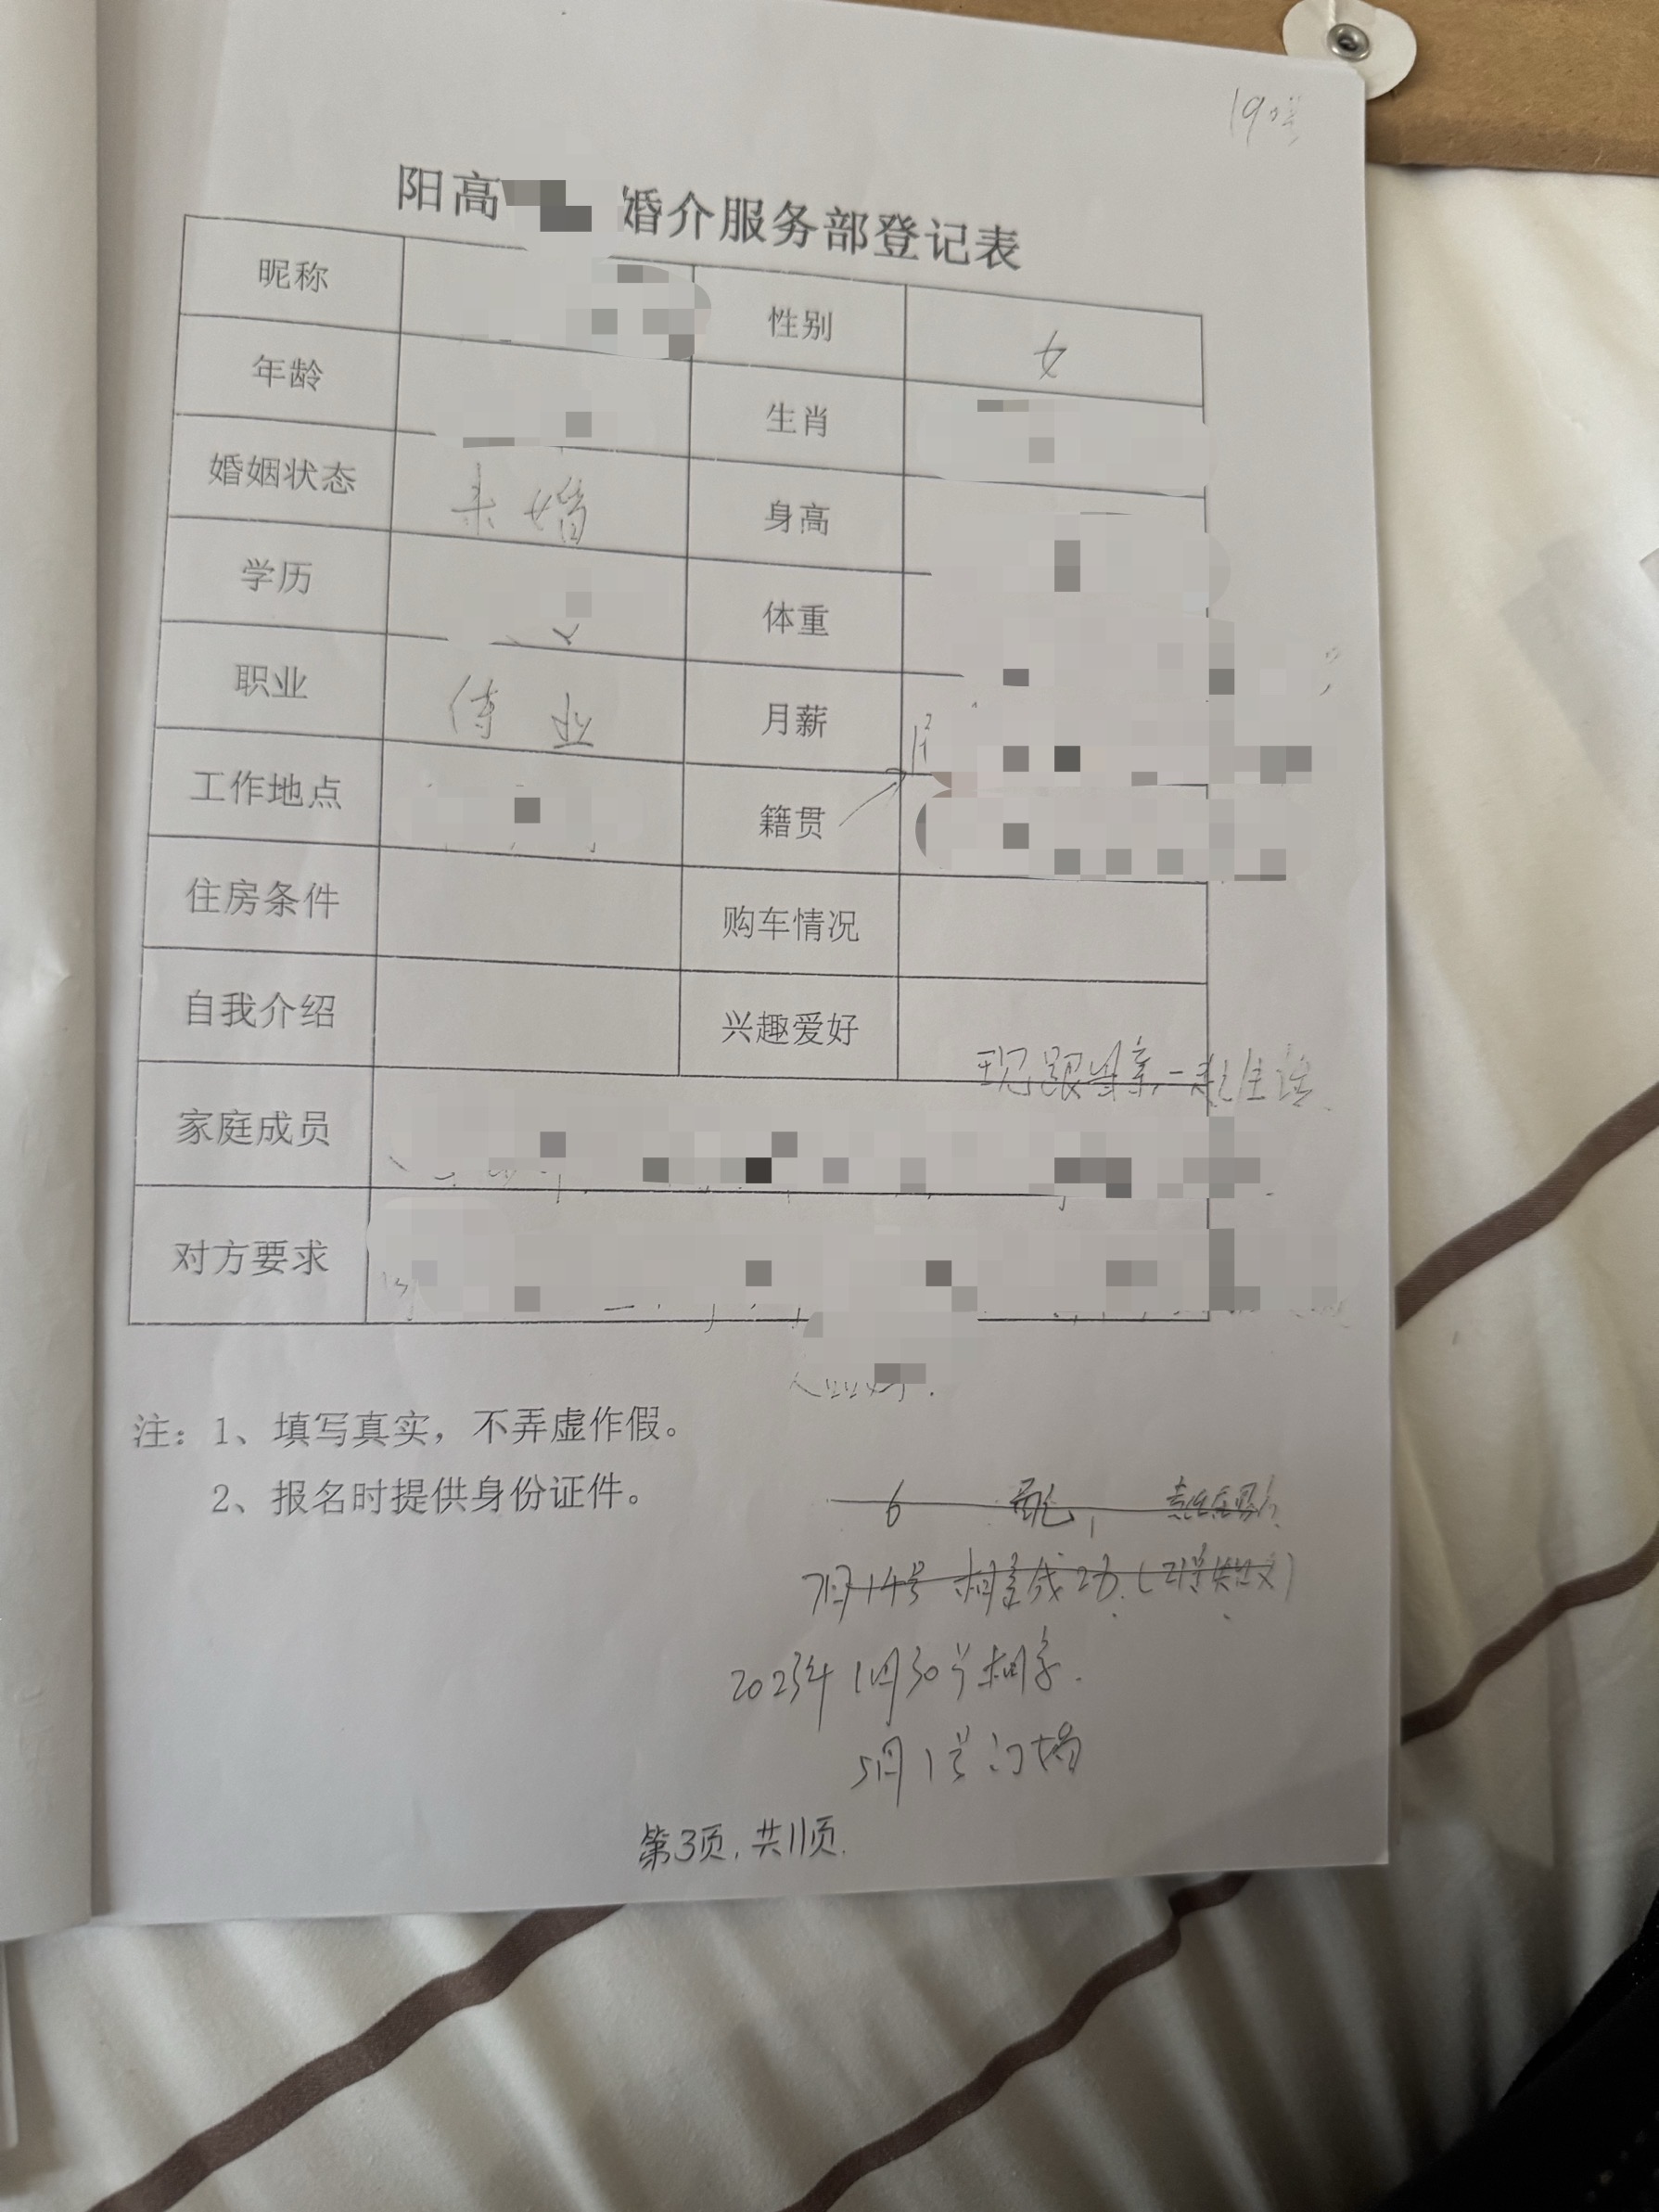 阳高 婚介服务部登记表
昵称 性别 女
年龄 生肖
婚姻状态 未婚 身高
学历 体重
职业 待业 月薪
工作地点 籍贯
住房条件 购车情况
自我介绍 兴趣爱好
现跟母亲一起生活
家庭成员
对方要求
注：1、填写真实，不弄虚作假。
2、报名时提供身份证件。
6
7月14号 相亲成功
2023年1月30号相亲.
5月1号
第3页,共11页.